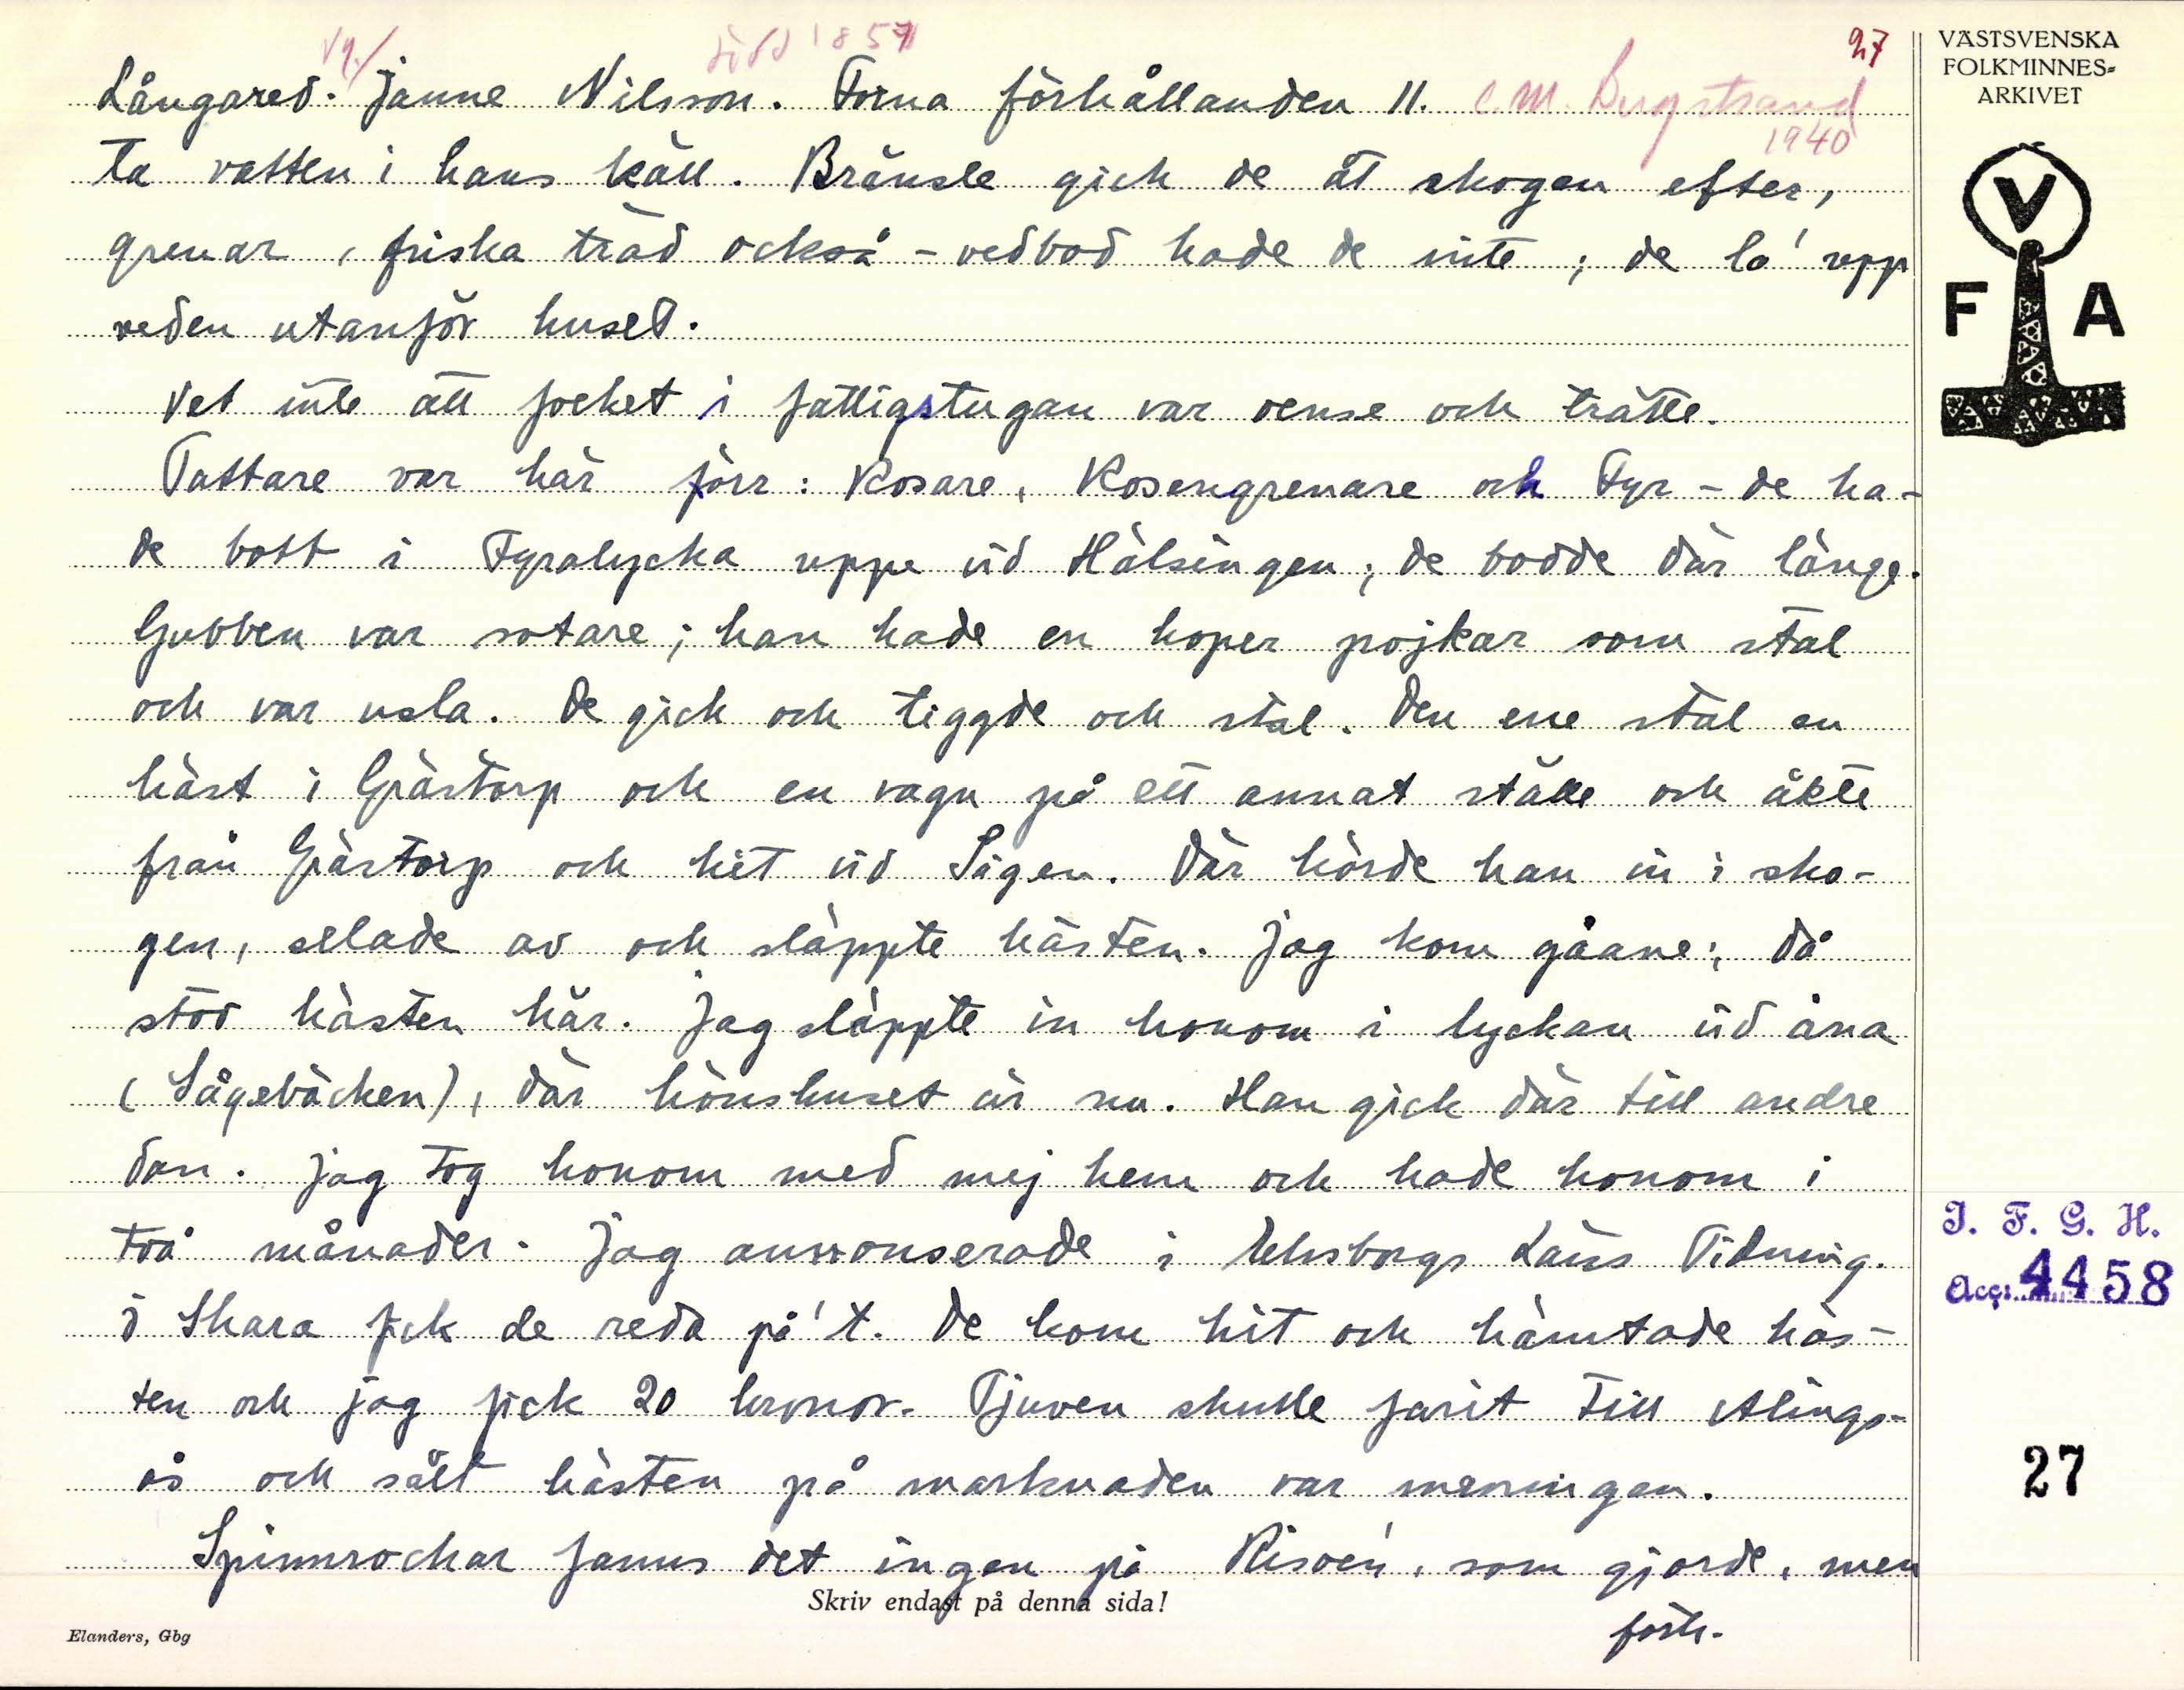 Vg. född 1857
27
Långared. Janne Nilsson. Forna förhållanden 11. C.M. Bergstrand
1940
ta vatten i hans käll. Bränsle gick de åt skogen efter,
grenar, friska träd också – vedbod hade de inte; de la' upp
veden utanför huset.
Vet inte att focket i fattigstugan var oense och trätte.
Tattare var här förr: Rosare, Rosengrenare och Fyr – de ha-
de bott i Fyralycka uppe vid Hälsingen; de bodde där länge.
Gubben var sotare; han hade en hoper pojkar som stal
och var usla. De gick och tiggde och stal. Den ene stal en
häst i Grästorp och en vagn på ett annat ställe och åkte
från Grästorp och hit vid Sågen. Där körde han in i sko-
gen, selade av och släppte hästen. Jag kom gåane; då
stod hästen här. Jag släppte in honom i lyckan vid åna
(Sågebäcken), där hönshuset är nu. Han gick där till andre
dan. Jag tog honom med mej hem och hade honom i
två månader. Jag annonserade i Elfsborgs Läns Tidning.
I Skara fick de reda på't. De kom hit och hämtade häs-
ten och jag fick 20 kronor. Tjuven skulle farit till Alings-
ås och sålt hästen på marknaden var meningen.
Spinnrockar fanns det ingen på som gjorde, men
forts.
Skriv endast på denna sida!
Elanders, Gbg
VÄSTSVENSKA
FOLKMINNES=
ARKIVET
V
F A
I. F. G. H.
Acc: 4458
27